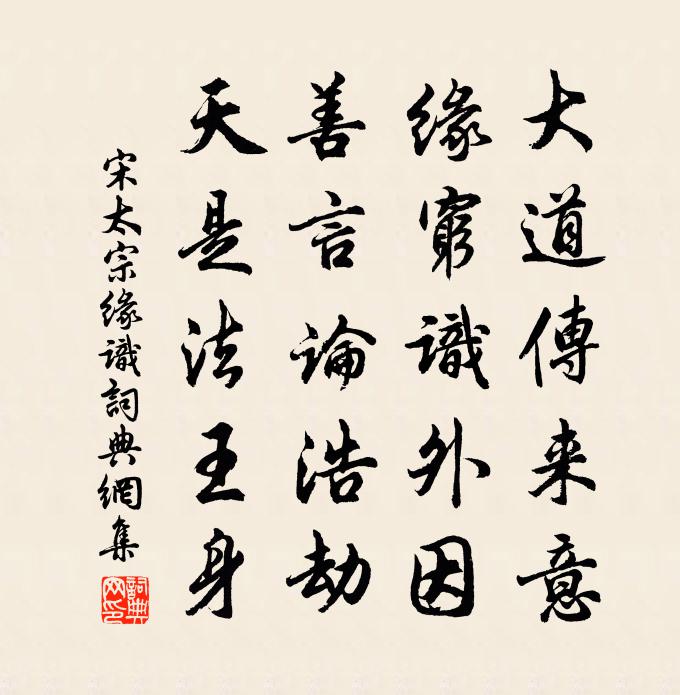 大道傳来意
緣窮識外因
善言論浩劫
天是法王身
宋太宗緣識詞典網集
詞典网印